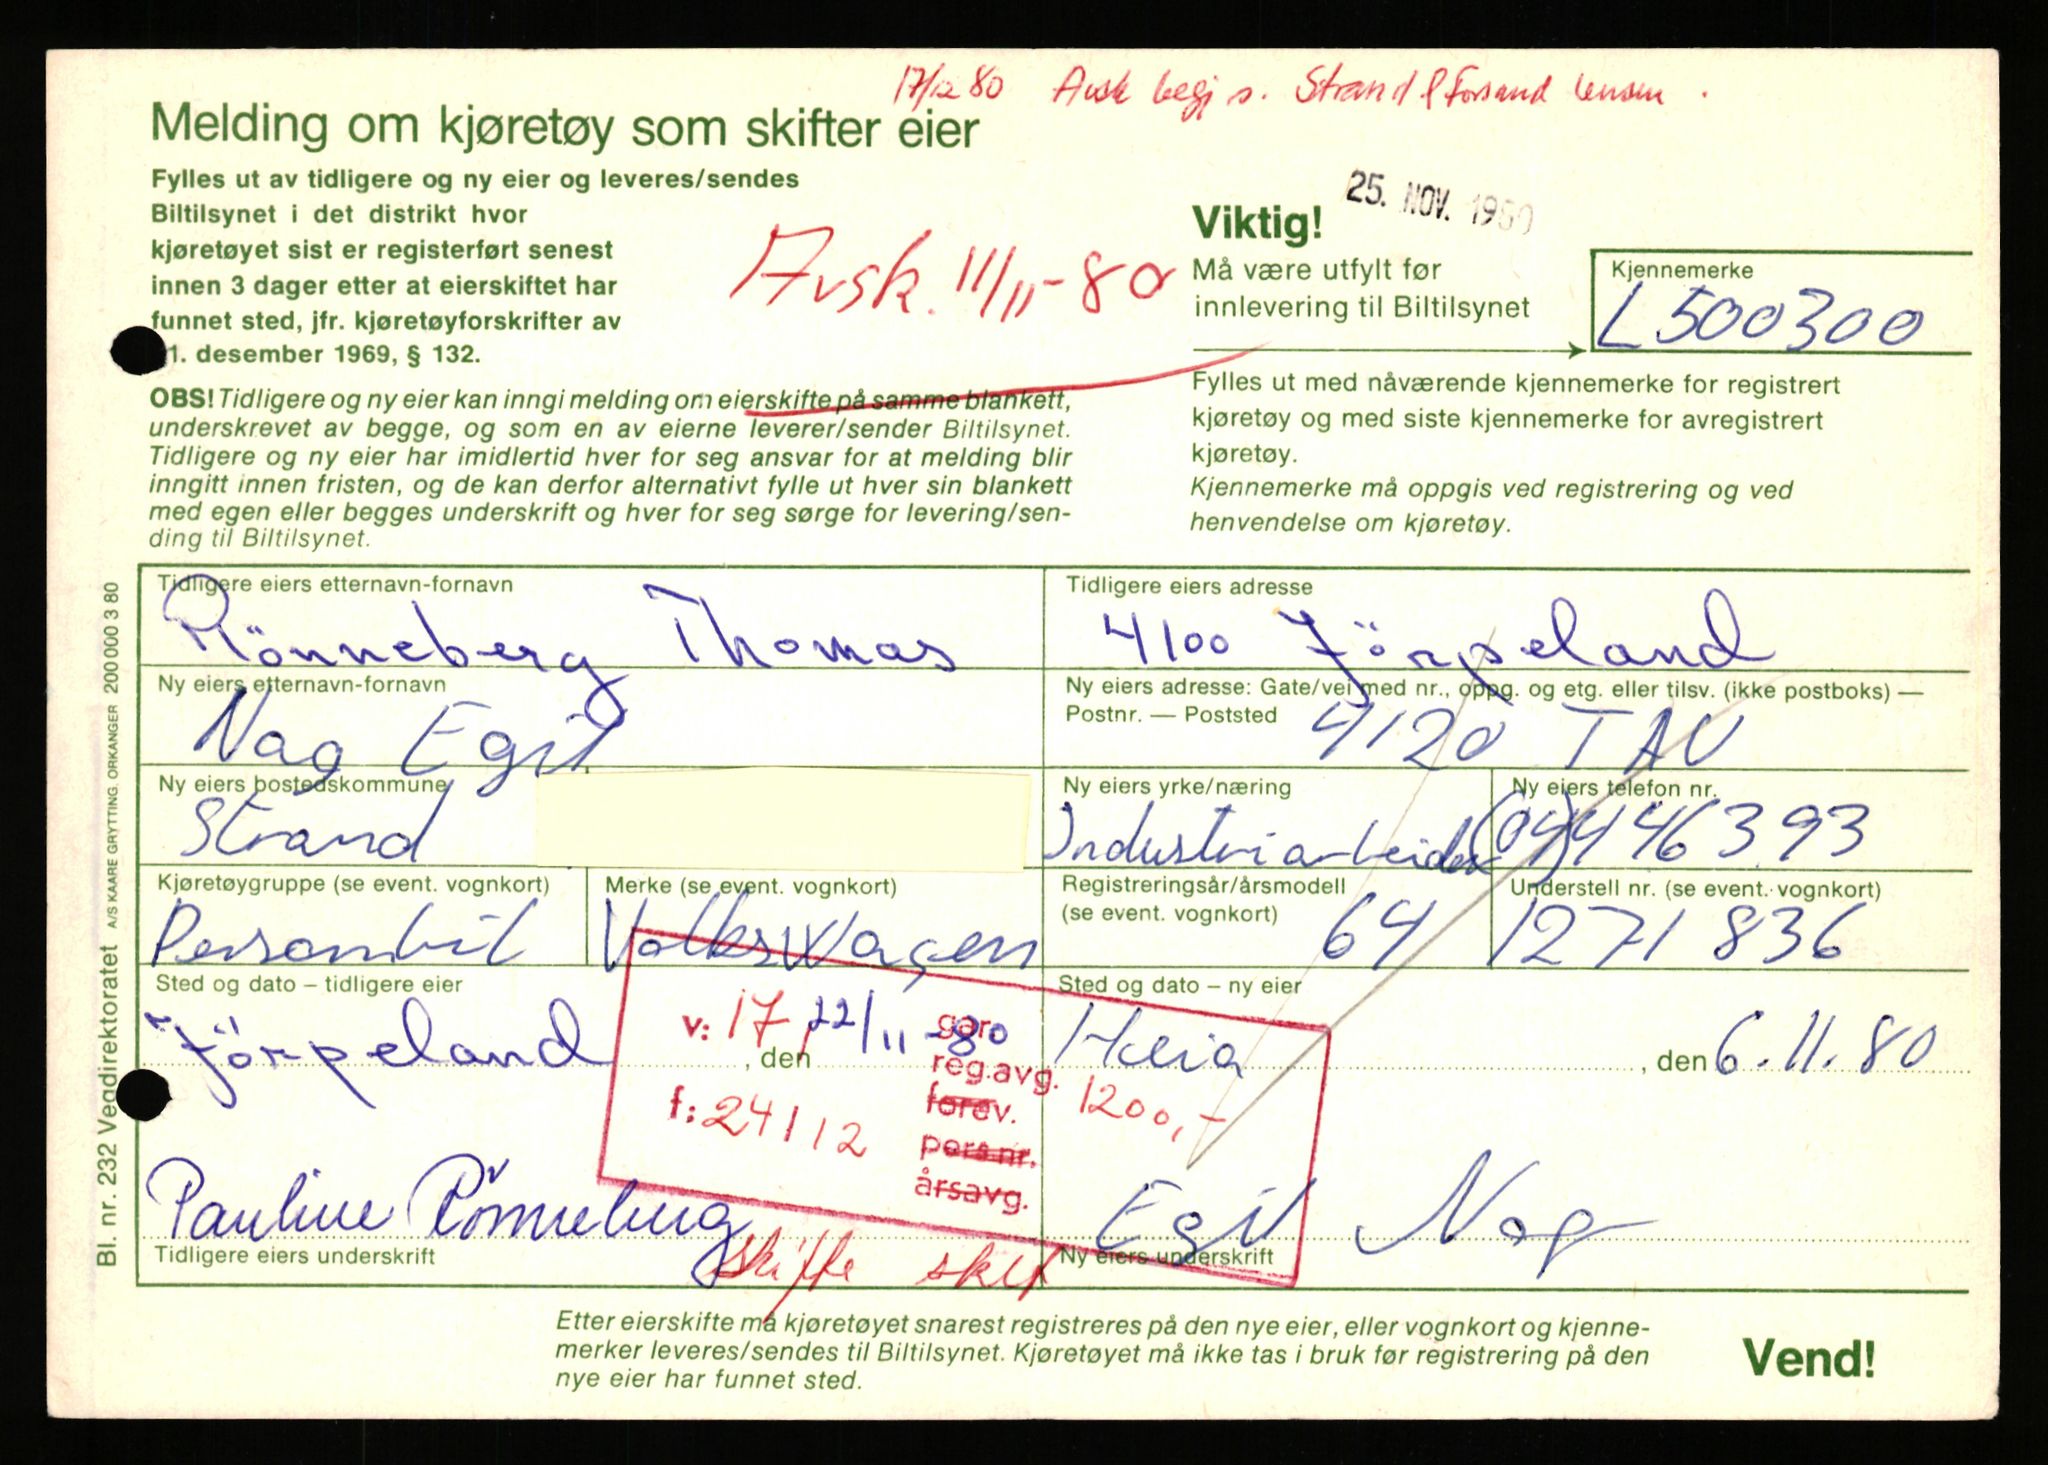 17/12 80 Avsk begj s. Strand & Forsand lensm.
Melding om kjøretøy som skifter eier
Fylles ut av tidligere og ny eier og leveres/sendes
Biltilsynet i det distrikt hvor
kjøretøyet sist er registerført senest
innen 3 dager etter at eierskiftet har
funnet sted, jfr. kjøretøyforskrifter av
1. desember 1969, § 132.
Avsk. 11/11-80
25. NOV. 1980
Viktig!
Må være utfylt før
innlevering til Biltilsynet
Kjennemerke
L500300
OBS! Tidligere og ny eier kan inngi melding om eierskifte på samme blankett,
underskrevet av begge, og som en av eierne leverer/sender Biltilsynet.
Tidligere og ny eier har imidlertid hver for seg ansvar for at melding blir
inngitt innen fristen, og de kan derfor alternativt fylle ut hver sin blankett
med egen eller begges underskrift og hver for seg sørge for levering/sen-
ding til Biltilsynet.
Fylles ut med nåværende kjennemerke for registrert
kjøretøy og med siste kjennemerke for avregistrert
kjøretøy.
Kjennemerke må oppgis ved registrering og ved
henvendelse om kjøretøy.
Tidligere eiers etternavn-fornavn
Rönneberg Thomas
Tidligere eiers adresse
4100 Jörpeland
Ny eiers etternavn-fornavn
Nag Egil
Ny eiers adresse: Gate/vei med nr., oppg. og etg. eller tilsv. (ikke postboks) —
Postnr. — Poststed
4120 TAU
Ny eiers bostedskommune
Strand
Ny eiers yrke/næring
Industriarbeider
Ny eiers telefon nr.
(04) 446393
Kjøretøygruppe (se event. vognkort)
Personbil
Merke (se event. vognkort)
Volkswagen
Registreringsår/årsmodell
(se event. vognkort)
64
Understell nr. (se event. vognkort)
1271836
Sted og dato – tidligere eier
Jörpeland, den 22/11-80
Sted og dato – ny eier
Heia, den 6.11.80
v: 17
f: 24/12
gar.
reg.avg. 1200,-
forev.
pers nr.
årsavg.
Pauline Rönneberg
Tidligere eiers underskrift
Skifte
Egil Nag
Ny eiers underskrift
Etter eierskifte må kjøretøyet snarest registreres på den nye eier, eller vognkort og kjenne-
merker leveres/sendes til Biltilsynet. Kjøretøyet må ikke tas i bruk før registrering på den
nye eier har funnet sted.
Vend!
Bl. nr. 232 Vegdirektoratet A/S KAARE GRYTTING. ORKANGER 200 000 3 80